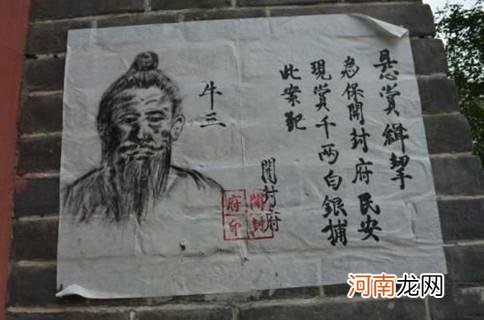 悬賞緝拏
為保開封府民安
現賞千两白銀捕
此案犯
牛三
開封府
開封
府印
河南龙网